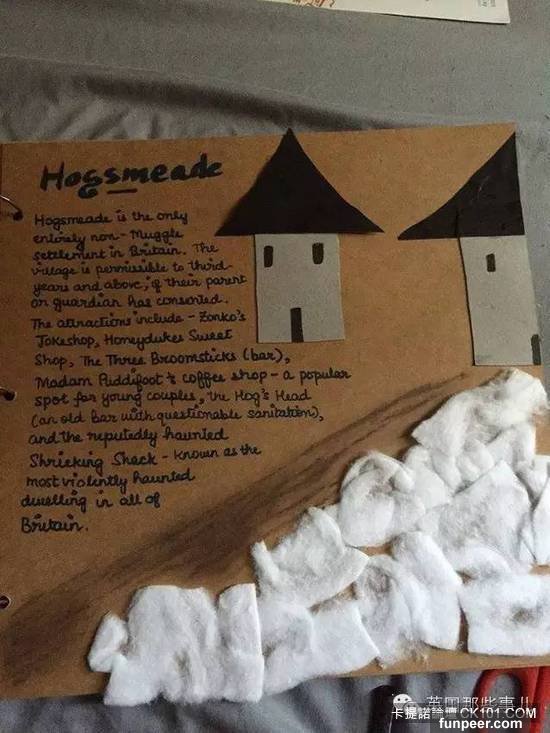 Hogsmeade
Hogsmeade is the only
entirely non-Muggle
settlement in Britain. The
village is permissible to third-
years and above, if their parent
or guardian has consented.
The attractions include - Zonko's
Jokeshop, Honeydukes Sweet
Shop, The Three Broomsticks (bar),
Madam Puddifoot's coffee shop - a popular
spot for young couples, the Hog's Head
(an old bar with questionable sanitation),
and the reputedly haunted
Shrieking Shack - known as the
most violently haunted
dwelling in all of
Britain.
英国那些事儿
卡提諾論壇CK101.COM
funpeer.com